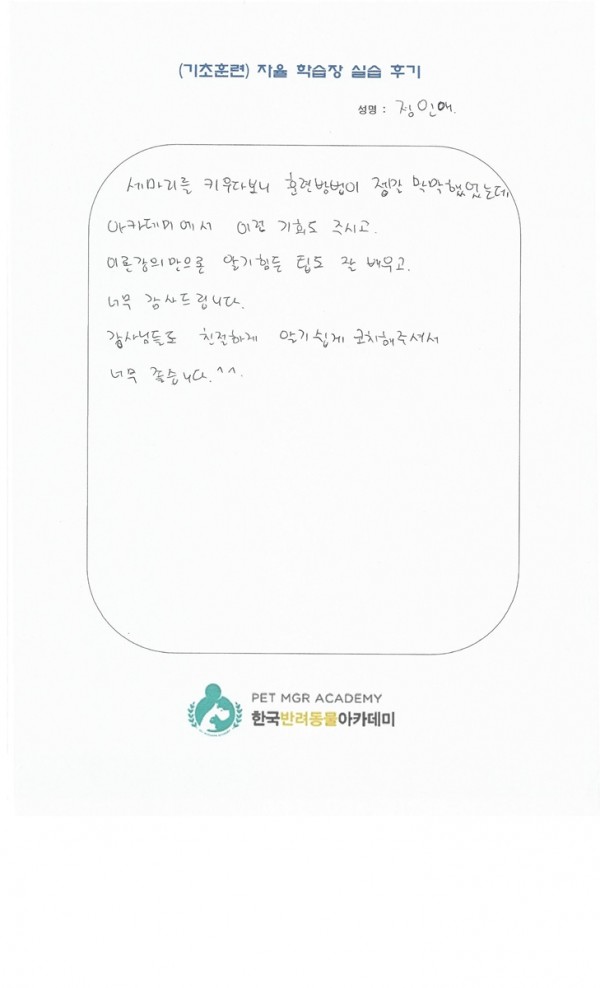 (기초훈련) 자율 학습장 실습 후기
성명 : 정인애.
세마리를 키우다보니 훈련방법이 젬간 막막했었는데
아카데미에서 이런 기회도 주시고.
이론강의만으론 알기힘든 팁도 잘 배우고.
너무 감사드립니다.
강사님들도 친절하게 알기쉽게 코치해주셔서
너무 좋습니다.^^.
PET MGR ACADEMY
한국반려동물아카데미